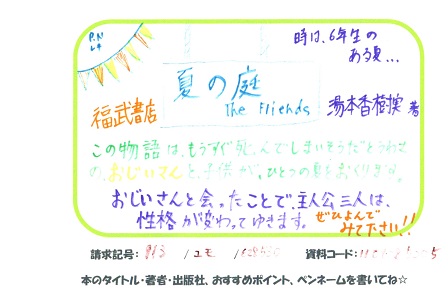 P.N
時は、6年生の
ある夏...
夏の庭
The Fliends
福武書店
湯本香樹実 著
この物語は、もうすぐ死んでしまいそうだとうわさ
の、おじいさんと、子供が、ひとつの夏をおくります。
おじいさんと会ったことで、主人公三人は、
性格が変わってゆきます。
ぜひよんで
みて下さい!!
請求記号: 913 / ユモ /
資料コード:
本のタイトル・著者・出版社、おすすめポイント、ペンネームを書いてね☆